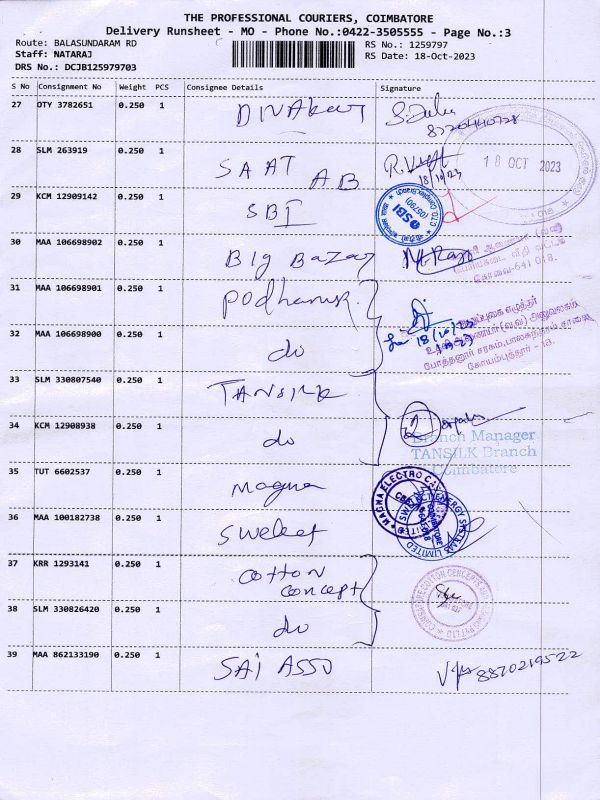 THE PROFESSIONAL COURIERS, COIMBATORE
Delivery Runsheet - MO - Phone No.:0422-3505555 - Page No.:3
Route: BALASUNDARAM RD
RS No.: 1259797
Staff: NATARAJ
RS Date: 18-Oct-2023
DRS No.: DCJB125979703
S No Consignment No Weight PCS Consignee Details Signature
27 OTY 3782651 0.250 1 DIVAKAR
18 OCT 2023
28 SLM 263919 0.250 1 SAAT AB 18/10/23
29 KCM 12909142 0.250 1 SBI
SBI
30 MAA 106698902 0.250 1 Big Bazar
கோவை-641 018.
31 MAA 106698901 0.250 1 Podhanur
18/10/23
32 MAA 106698900 0.250 1 do
போத்தனூர் சரகம், பாலசுந்தரம் சாலை
கோயம்புத்தூர் - 18.
33 SLM 330807540 0.250 1 TANSILK
34 KCM 12908938 0.250 1 do
Branch Manager
TANSILK Branch
Coimbatore
35 TUT 6602537 0.250 1 Magna
MAGNA ELECTRO
36 MAA 100182738 0.250 1 Swelect
SWELECT ENERGY SYSTEMS LIMITED
37 KRR 1293141 0.250 1 Cotton Concept
COTTON CONCEPTS
38 SLM 330826420 0.250 1 do
39 MAA 862133190 0.250 1 SAI ASSO 8870219522